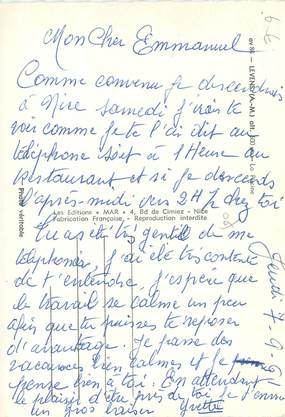 Mon Cher Emmanuel
Comme convenu je descendrais
à Nice samedi j'irais te
voir comme je te l'ai dit au
téléphone soit à 1 Heure au
restaurant et si je descends
l'après-midi vers 2H chez toi
Les Editions • MAR • 4, Bd de Cimiez - Nice
Fabrication Française, - Reproduction interdite
Tu as été très gentil de me
téléphoner, j'ai été très contente
de t'entendre. j'espère que
le travail se calme un peu
afin que tu puisses te reposer
d'avantage. Je passe des
vacances bien calmes et je
pense bien à toi. En attendant
le plaisir d'être près de toi, je t'envoie
un gros baiser Yvette
Photo véritable
LEVENS (A.-M.) alt. 600
Jeudi 7-9-6